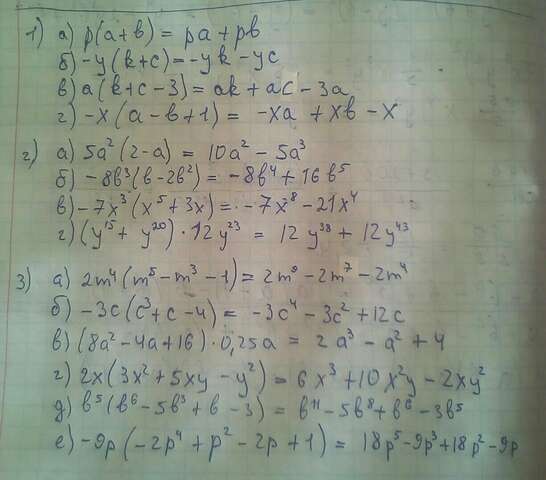 1) а) p(a+b) = pa + pb
б) -y(k+c) = -yk - yc
в) a(k+c-3) = ak + ac - 3a
г) -x(a-b+1) = -xa + xb - x
2) а) 5a²(2-a) = 10a² - 5a³
б) -8b³(b-2b²) = -8b⁴ + 16b⁵
в) -7x³(x⁵+3x) = -7x⁸ - 21x⁴
г) (y¹⁵ + y²⁰) · 12y²³ = 12y³⁸ + 12y⁴³
3) а) 2m⁴(m⁵ - m³ - 1) = 2m⁹ - 2m⁷ - 2m⁴
б) -3c(c³ + c - 4) = -3c⁴ - 3c² + 12c
в) (8a² - 4a + 16) · 0,25a = 2a³ - a² + 4
г) 2x(3x² + 5xy - y²) = 6x³ + 10x²y - 2xy²
д) b⁵(b⁶ - 5b³ + b - 3) = b¹¹ - 5b⁸ + b⁶ - 3b⁵
е) -9p(-2p⁴ + p² - 2p + 1) = 18p⁵ - 9p³ + 18p² - 9p